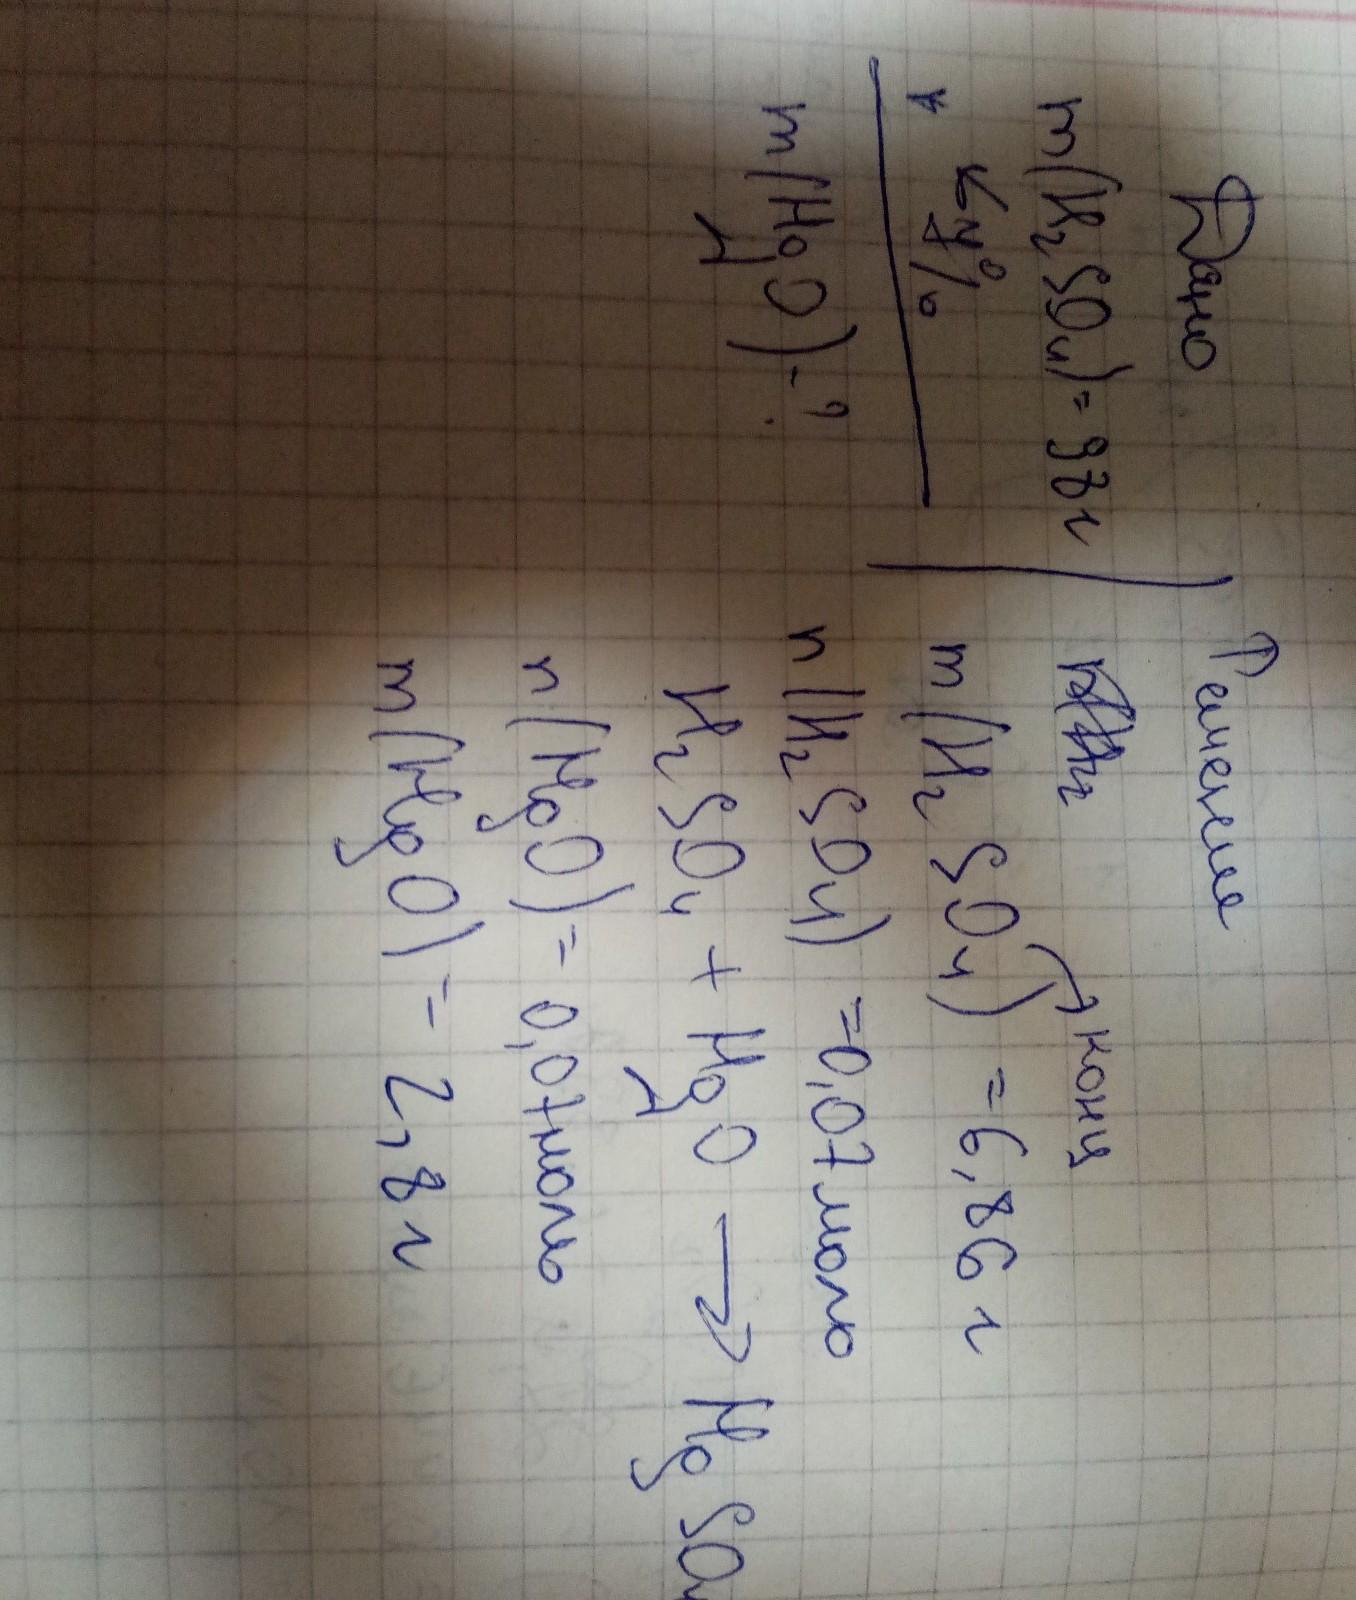 Дано
m(H₂SO₄) = 98 г
7%
m(MgO) - ?
Решение
m(H₂SO₄) = 6,86 г
конц
n(H₂SO₄) = 0,07 моль
H₂SO₄ + MgO → MgSO₄
n(MgO) = 0,07 моль
m(MgO) = 2,8 г